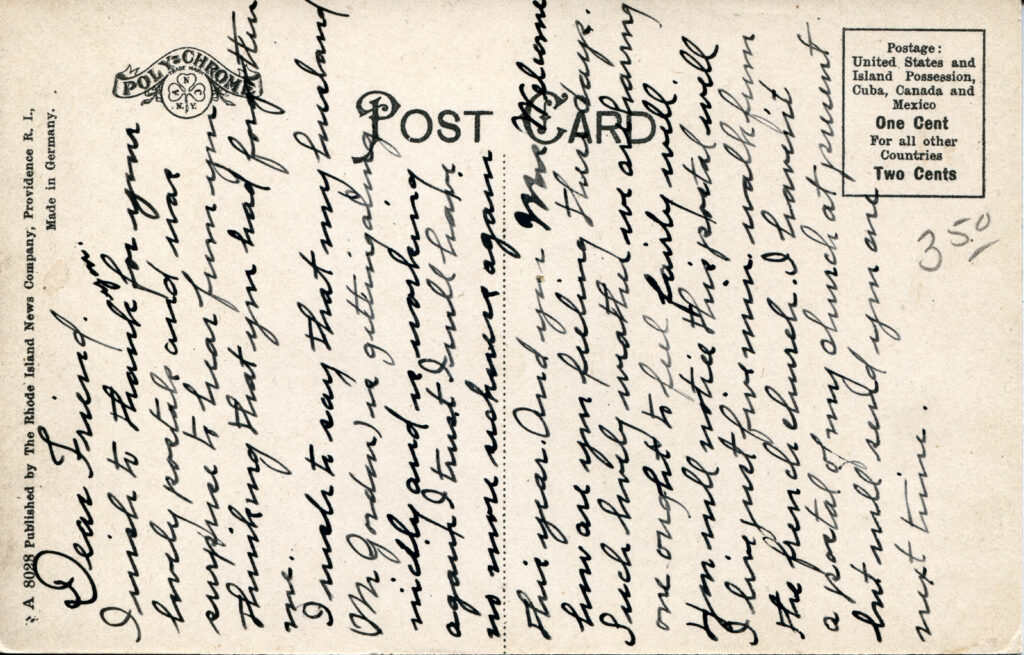 A 8028 Published by The Rhode Island News Company, Providence R. I.,
Made in Germany.
POLY-CHROME
TRADE MARK
A N C
N.Y.
POST CARD
Postage:
United States and
Island Possession,
Cuba, Canada and
Mexico
One Cent
For all other
Countries
Two Cents
350
Dear Friend.
I wish to thank you for your
lovely postals and was
surprise to hear from you
thinking that you had forgotten
me.
I wish to say that my husband
(Mr Gordon) is getting along
nicely and is working
again I trust I will have
no more sickness again
this year. And you Mr
how are you feeling these days.
Such lovely weather we are having
one ought to feel fairly well.
You will notice this postal well
I live just five min. walk from
the french church. I havent
a postal of my church at present
but will send you one
next time.